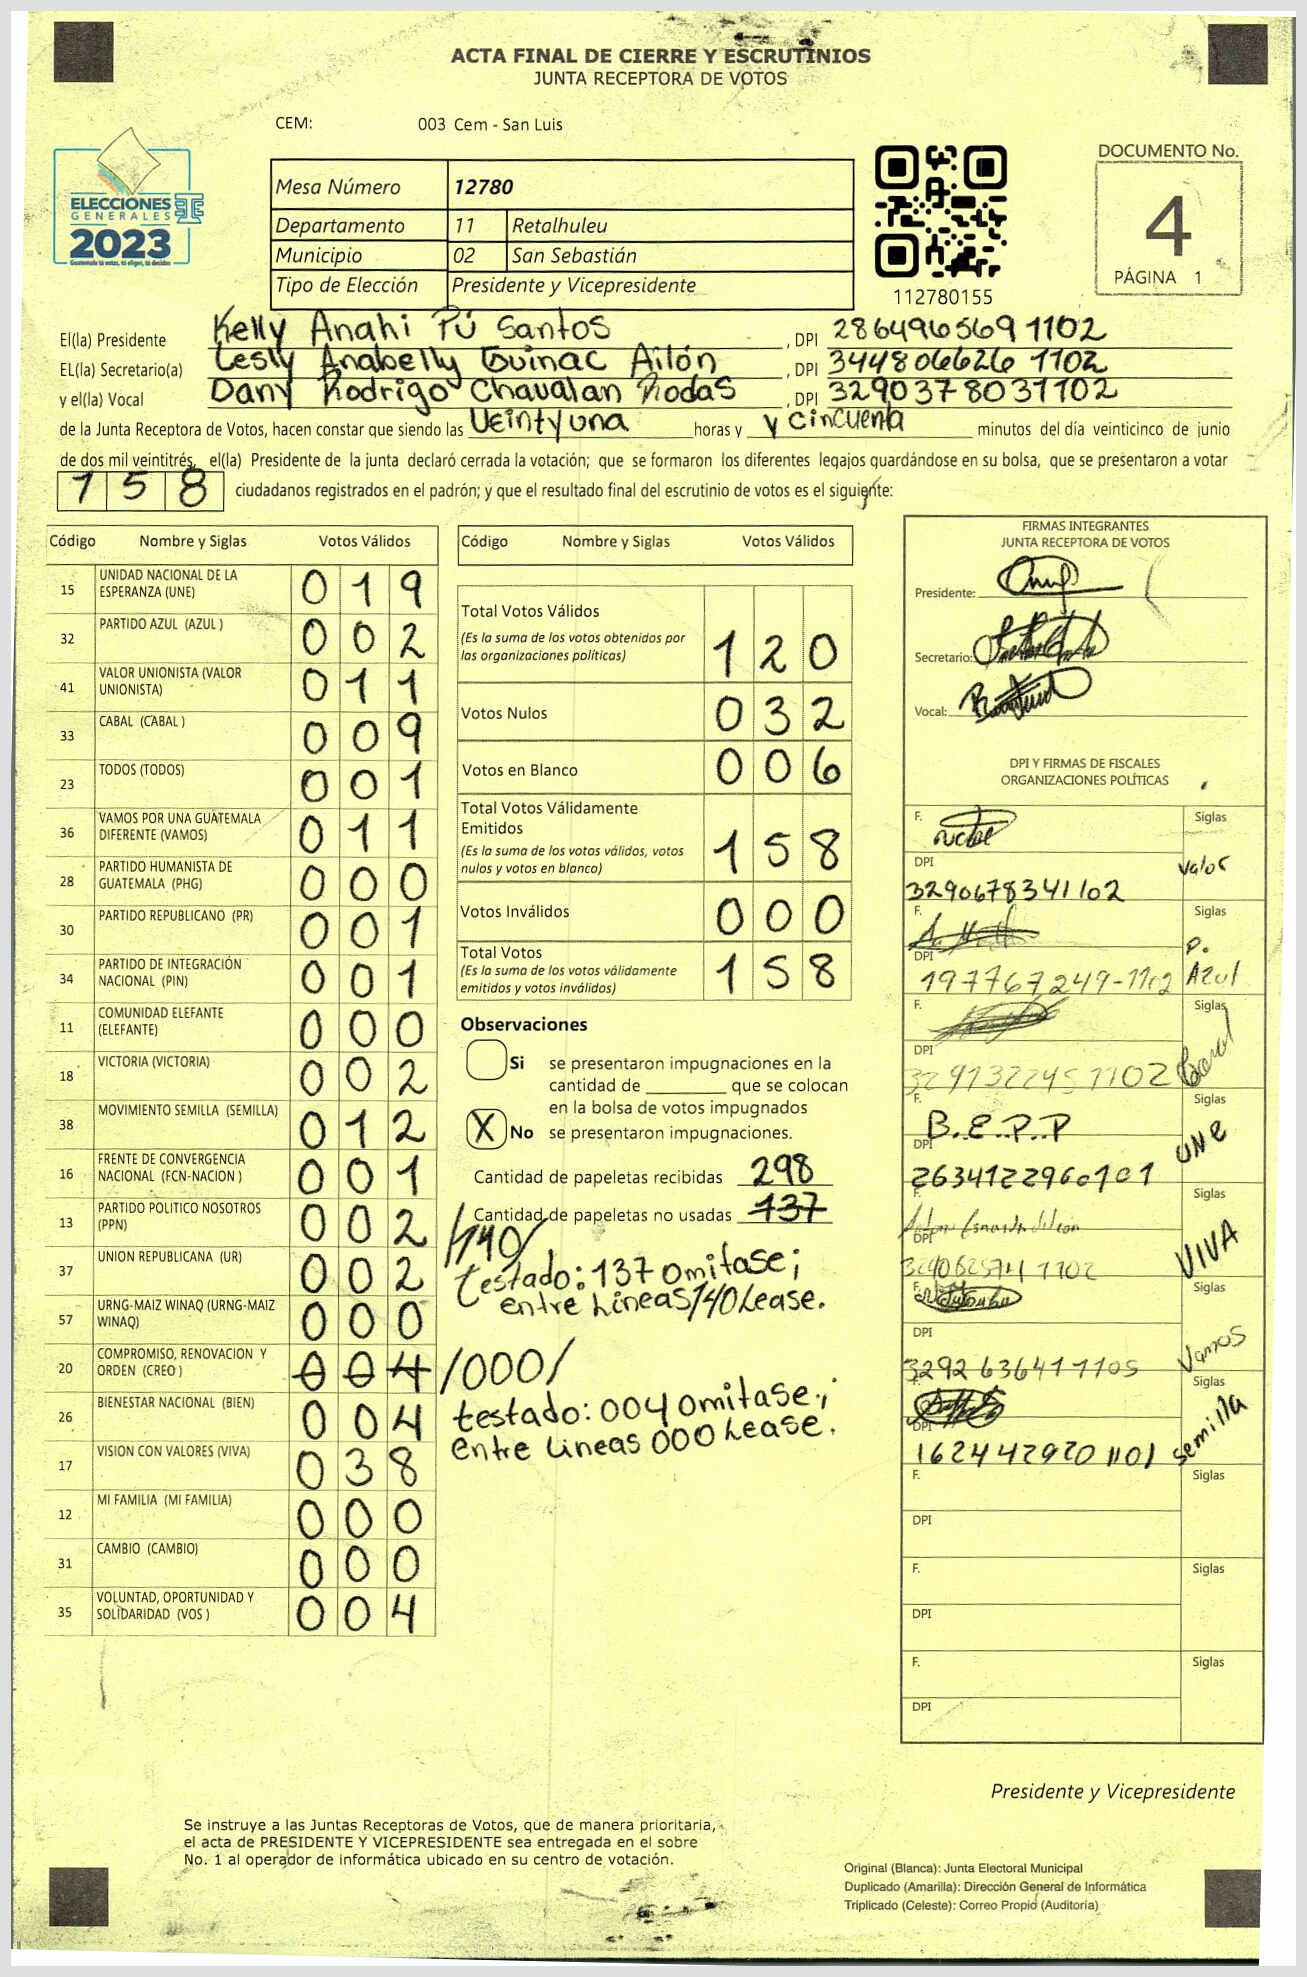 ACTA FINAL DE CIERRE Y ESCRUTINIOS
JUNTA RECEPTORA DE VOTOS
CEM: 003 Cem - San Luis
ELECCIONES
GENERALES
2023
Guatemala tú votas, tú eliges, tú decides
Mesa Número 12780
Departamento 11 Retalhuleu
Municipio 02 San Sebastián
Tipo de Elección Presidente y Vicepresidente
112780155
DOCUMENTO No.
4
PÁGINA 1
El(la) Presidente Kelly Anahi Pú Santos , DPI 2864965691102
EL(la) Secretario(a) Lesly Anabelly Guinac Ailón , DPI 3448066261102
y el(la) Vocal Dany Rodrigo Chavalan Rodas , DPI 3290378031102
de la Junta Receptora de Votos, hacen constar que siendo las Veintyuna horas y y cincuenta minutos del día veinticinco de junio
de dos mil veintitrés, el(la) Presidente de la junta declaró cerrada la votación; que se formaron los diferentes legajos guardándose en su bolsa, que se presentaron a votar
158 ciudadanos registrados en el padrón; y que el resultado final del escrutinio de votos es el siguiente:
Código Nombre y Siglas Votos Válidos
15 UNIDAD NACIONAL DE LA ESPERANZA (UNE) 019
32 PARTIDO AZUL (AZUL ) 002
41 VALOR UNIONISTA (VALOR UNIONISTA) 011
33 CABAL (CABAL ) 009
23 TODOS (TODOS) 001
36 VAMOS POR UNA GUATEMALA DIFERENTE (VAMOS) 011
28 PARTIDO HUMANISTA DE GUATEMALA (PHG) 000
30 PARTIDO REPUBLICANO (PR) 001
34 PARTIDO DE INTEGRACIÓN NACIONAL (PIN) 001
11 COMUNIDAD ELEFANTE (ELEFANTE) 000
18 VICTORIA (VICTORIA) 002
38 MOVIMIENTO SEMILLA (SEMILLA) 012
16 FRENTE DE CONVERGENCIA NACIONAL (FCN-NACION ) 001
13 PARTIDO POLITICO NOSOTROS (PPN) 002
37 UNION REPUBLICANA (UR) 002
57 URNG-MAIZ WINAQ (URNG-MAIZ WINAQ) 000
20 COMPROMISO, RENOVACION Y ORDEN (CREO ) 004 /000/
26 BIENESTAR NACIONAL (BIEN) 004
17 VISION CON VALORES (VIVA) 038
12 MI FAMILIA (MI FAMILIA) 000
31 CAMBIO (CAMBIO) 000
35 VOLUNTAD, OPORTUNIDAD Y SOLIDARIDAD (VOS ) 004
Código Nombre y Siglas Votos Válidos
Total Votos Válidos 120
(Es la suma de los votos obtenidos por
las organizaciones políticas)
Votos Nulos 032
Votos en Blanco 006
Total Votos Válidamente
Emitidos 158
(Es la suma de los votos válidos, votos
nulos y votos en blanco)
Votos Inválidos 000
Total Votos 158
(Es la suma de los votos válidamente
emitidos y votos inválidos)
Observaciones
Si se presentaron impugnaciones en la
cantidad de ________ que se colocan
en la bolsa de votos impugnados
X No se presentaron impugnaciones.
Cantidad de papeletas recibidas 298
Cantidad de papeletas no usadas 137
/140/
testado: 137 Omitase;
entre Lineas/140 Lease.
testado: 004 Omitase;
entre Lineas 000 Lease.
FIRMAS INTEGRANTES
JUNTA RECEPTORA DE VOTOS
Presidente:
Secretario:
Vocal:
DPI Y FIRMAS DE FISCALES
ORGANIZACIONES POLÍTICAS
F. Siglas
DPI Valor
3290678341102
F. Siglas
DPI P. Azul
197767249-1102
F. Siglas
DPI
F. B.E.P.P Siglas
DPI UNE
2634122960101
F. Siglas
DPI VIVA
F. Siglas
DPI Vamos
3292636411105
F. Siglas
DPI Semilla
1624429201101
F. Siglas
DPI
F. Siglas
DPI
F. Siglas
DPI
Presidente y Vicepresidente
Se instruye a las Juntas Receptoras de Votos, que de manera prioritaria,
el acta de PRESIDENTE Y VICEPRESIDENTE sea entregada en el sobre
No. 1 al operador de informática ubicado en su centro de votación.
Original (Blanca): Junta Electoral Municipal
Duplicado (Amarilla): Dirección General de Informática
Triplicado (Celeste): Correo Propio (Auditoría)